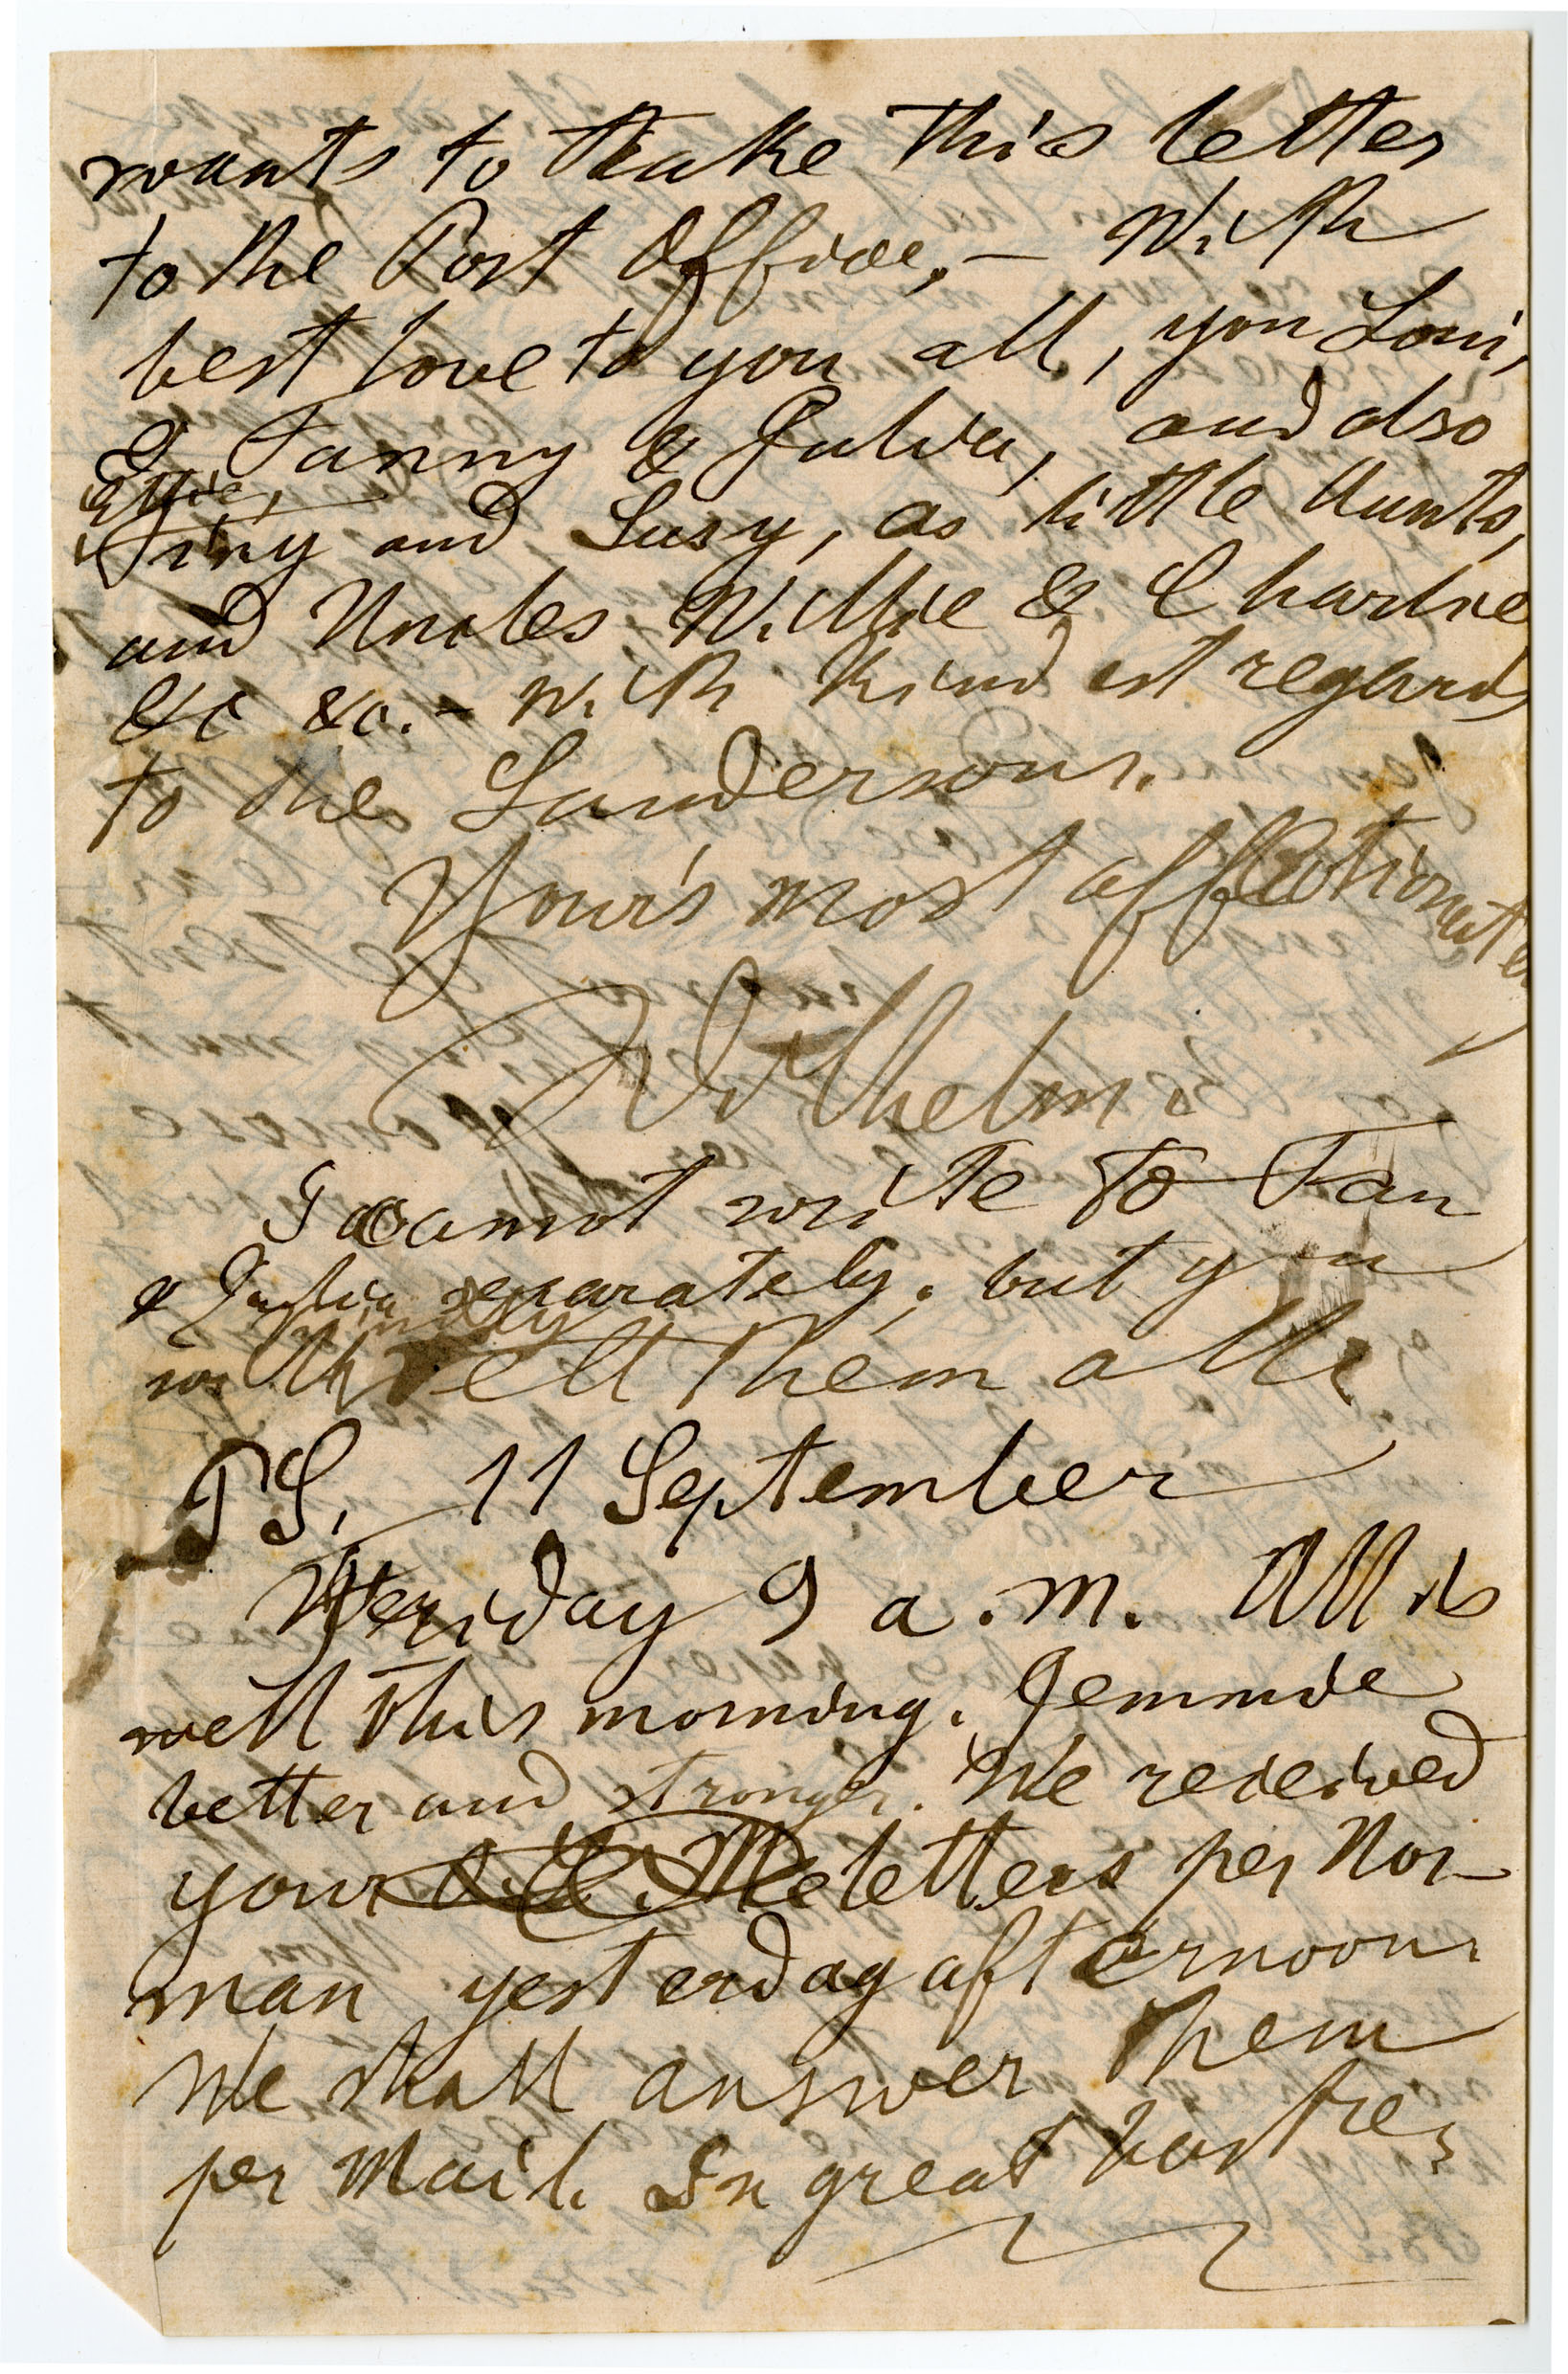 wants to take this letter
to the Post Office. — With
best love to you all, you Loui,
& Fanny & Julia, and also
Effie,
Tiny and Susy, as little Aunts,
and Uncles Willie & Charlie
&c &c. — With kindest regards
to the Sandersons.
Your's most affectionately
Wilhelm.
I cannot write to Fan
& Julia separately, but you
will kindly tell them all.
PS. 11 September
day 9 a.m. All is
well this morning. Jemmie
better and stronger. We received
your letters per Nor-
man yesterday afternoon.
We shall answer them
per Mail. In great haste.